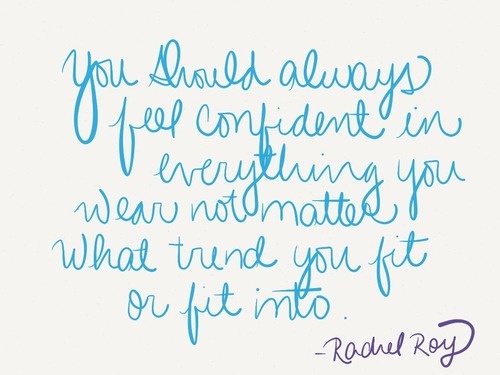 You should always
feel confident in
everything you
wear not matter
what trend you fit
or fit into.
-Rachel Roy